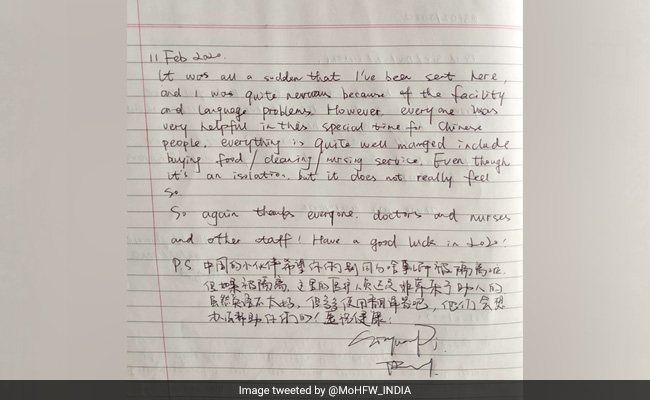 11 Feb 2020.
It was all a sudden that I've been sent here,
and I was quite nervous because of the facility
and language problems. However, everyone was
very helpful in this special time for Chinese
people. everything is quite well manged include
buying food / cleaning / nursing service. Even though
it's an isolation, but it does not really feel
so.
So again thanks everyone. doctors and nurses
and other staff! Have a good luck in 2020!
PS 中国的小伙伴希望你们别因为啥事儿被隔离啦.
但如果被隔离, 这里的医护人员还是非常乐于助人的
虽然英语不太好, 但多多使用翻译器吧, 他们会想
办法帮助你们的! 祝健康.
Image tweeted by @MoHFW_INDIA